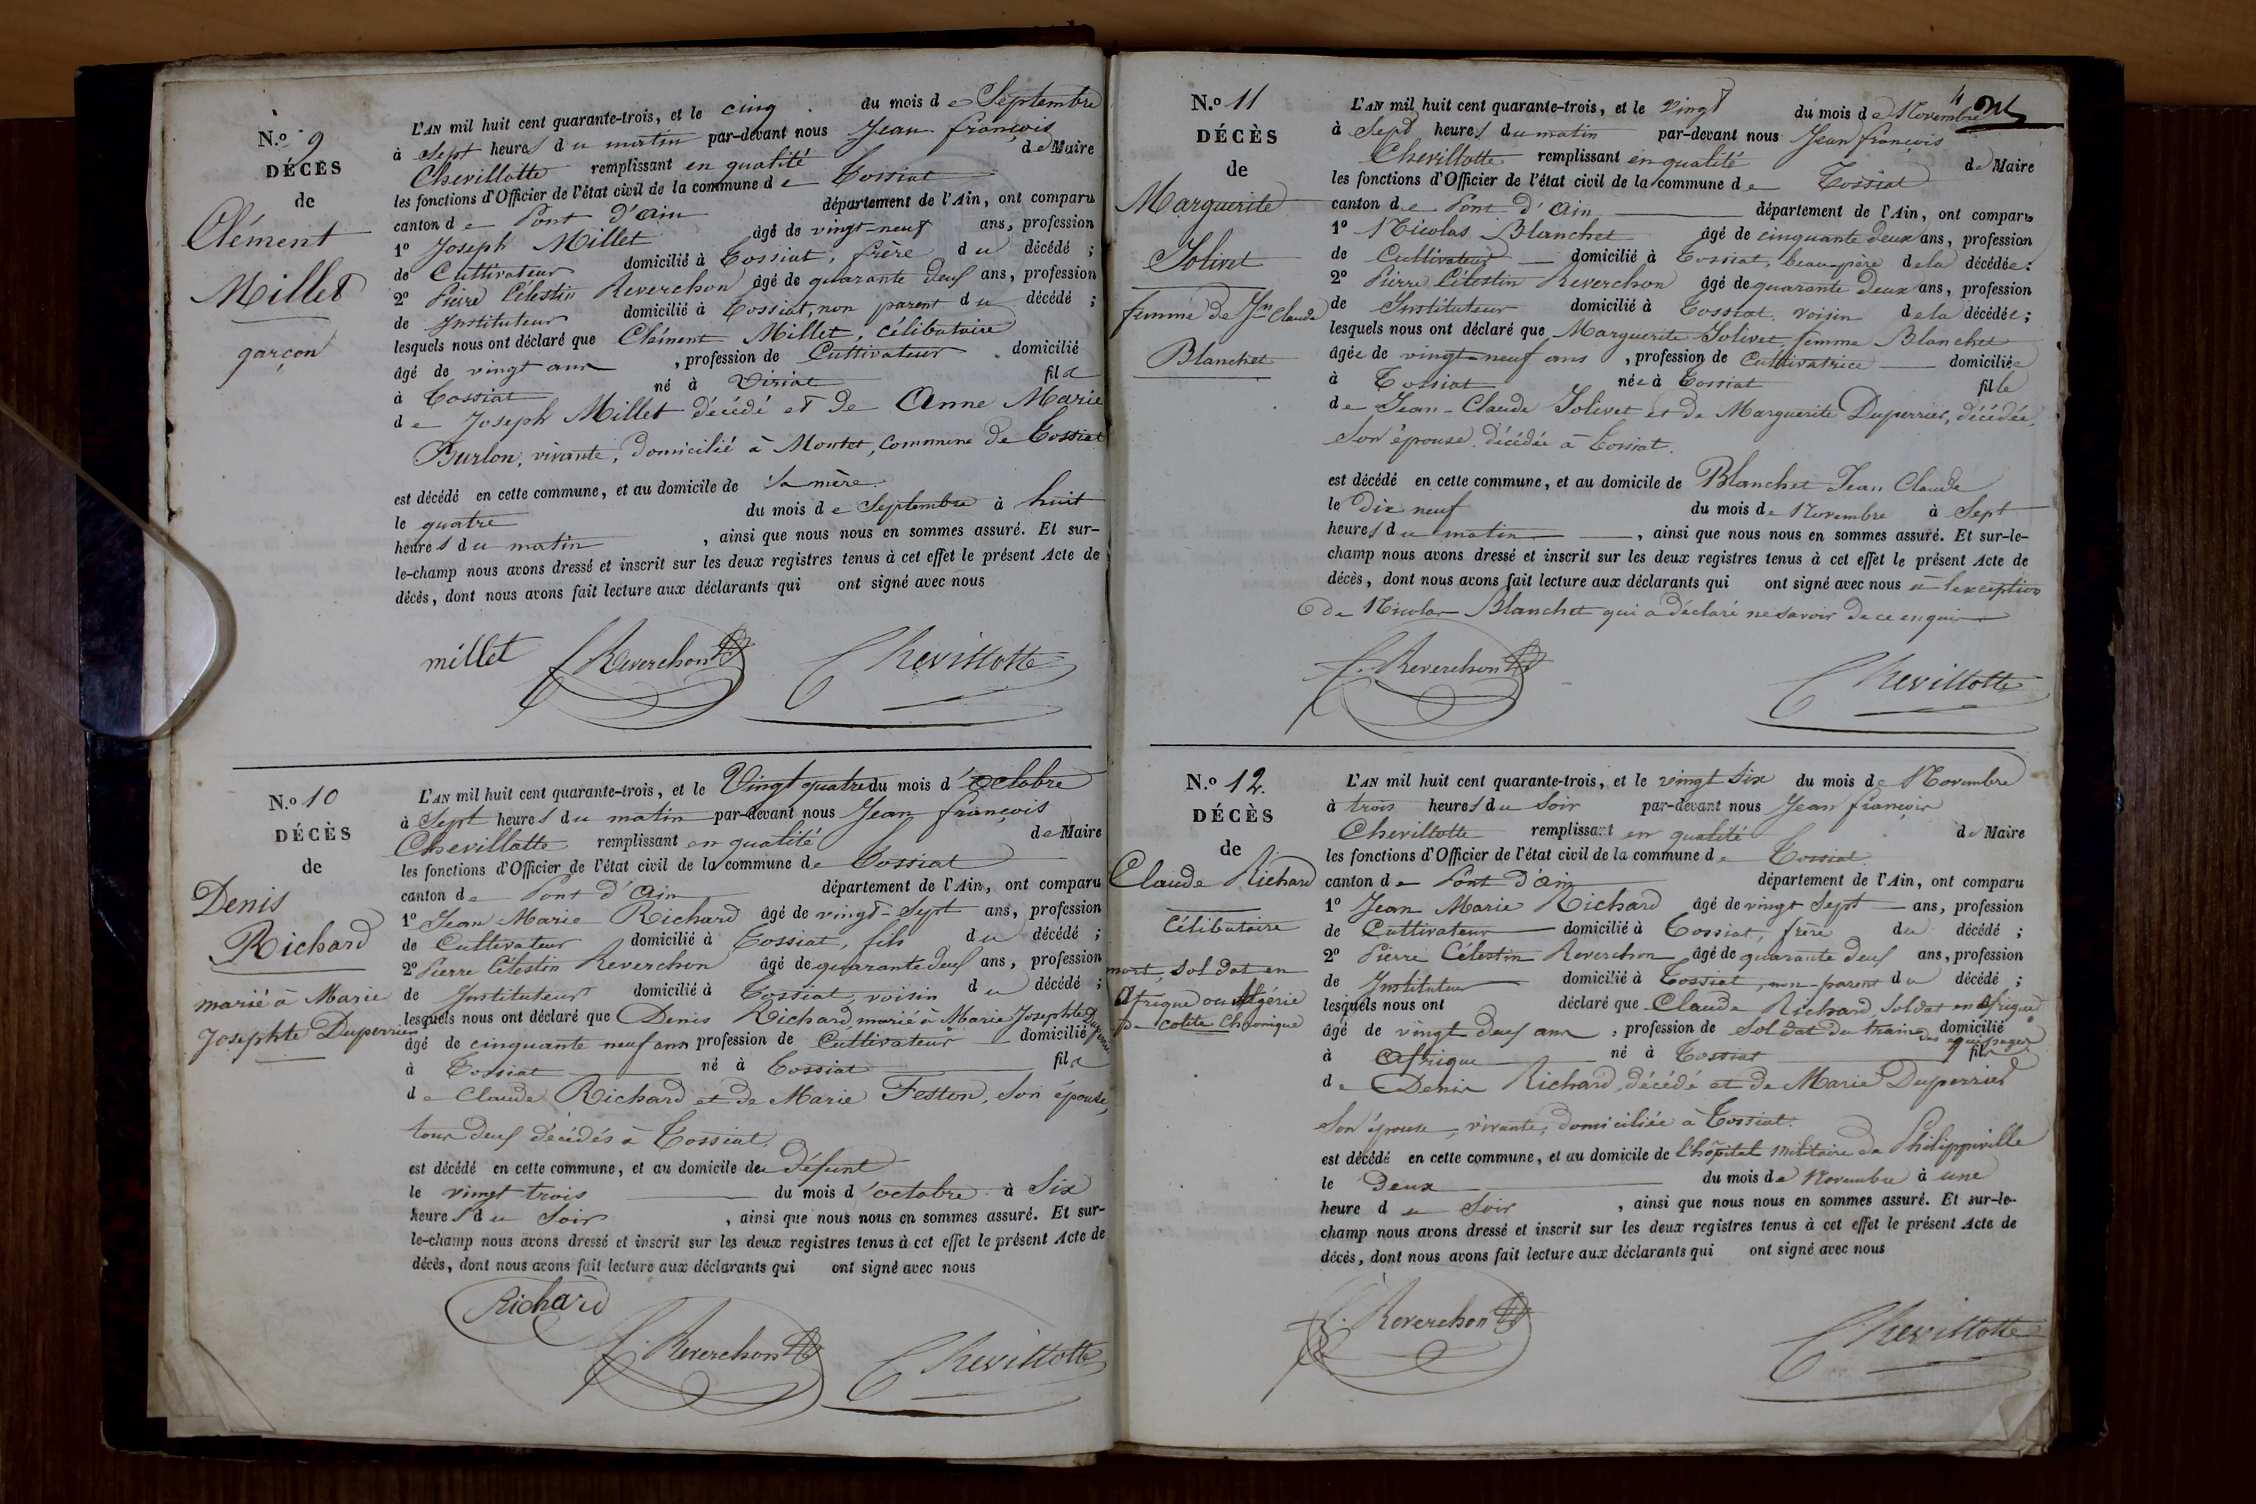 N.º 9
DÉCÈS
de
Clément
Millet
garçon
L'AN mil huit cent quarante-trois, et le cinq du mois de Septembre
à Sept heures du matin par-devant nous Jean François
Chevillotte remplissant en qualité de Maire
les fonctions d'Officier de l'état civil de la commune de Tossiat
canton de Pont d'Ain département de l'Ain, ont comparu
1º Joseph Millet âgé de vingt-neuf ans, profession
de Cultivateur domicilié à Tossiat, frère du décédé ;
2º Pierre Célestin Reverchon âgé de quarante deux ans, profession
de Instituteur domicilié à Tossiat, non parent du décédé ;
lesquels nous ont déclaré que Clément Millet, célibataire
âgé de vingt ans, profession de Cultivateur domicilié
à Tossiat né à Viriat fils
de Joseph Millet décédé et de Anne Marie
Burlon, vivante, domicilié à Montet, commune de Tossiat
est décédé en cette commune, et au domicile de sa mère
le quatre du mois de Septembre à huit
heures du matin, ainsi que nous nous en sommes assuré. Et sur-
le-champ nous avons dressé et inscrit sur les deux registres tenus à cet effet le présent Acte de
décès, dont nous avons fait lecture aux déclarants qui ont signé avec nous
millet Reverchon Chevillotte
N.º 10
DÉCÈS
de
Denis
Richard
marié à Marie
Josephte Duperrier
L'AN mil huit cent quarante-trois, et le Vingt quatre du mois d'Octobre
à Sept heures du matin par-devant nous Jean François
Chevillotte remplissant en qualité de Maire
les fonctions d'Officier de l'état civil de la commune de Tossiat
canton de Pont d'Ain département de l'Ain, ont comparu
1º Jean Marie Richard âgé de vingt-Sept ans, profession
de Cultivateur domicilié à Tossiat, fils du décédé ;
2º Pierre Célestin Reverchon âgé de quarante deux ans, profession
de Instituteur domicilié à Tossiat, voisin du décédé ;
lesquels nous ont déclaré que Denis Richard, marié à Marie Josephte Duperrier
âgé de cinquante neuf ans profession de Cultivateur domicilié
à Tossiat né à Tossiat fils
de Claude Richard et de Marie Feston, son épouse,
tous deux décédés à Tossiat,
est décédé en cette commune, et au domicile du défunt
le vingt trois du mois d'octobre à Six
heures du Soir, ainsi que nous nous en sommes assuré. Et sur-
le-champ nous avons dressé et inscrit sur les deux registres tenus à cet effet le présent Acte de
décès, dont nous avons fait lecture aux déclarants qui ont signé avec nous
Richard
Reverchon Chevillotte
4
N.º 11
DÉCÈS
de
Marguerite
Jolivet
femme de Jn Claude
Blanchet
L'AN mil huit cent quarante-trois, et le vingt du mois de Novembre
à Sept heures du matin par-devant nous Jean François
Chevillotte remplissant en qualité de Maire
les fonctions d'Officier de l'état civil de la commune de Tossiat
canton de Pont d'Ain département de l'Ain, ont comparu
1º Nicolas Blanchet âgé de cinquante deux ans, profession
de Cultivateur domicilié à Tossiat, beau-père de la décédée ;
2º Pierre Célestin Reverchon âgé de quarante deux ans, profession
de Instituteur domicilié à Tossiat, voisin de la décédée ;
lesquels nous ont déclaré que Marguerite Jolivet, femme Blanchet
âgée de vingt-neuf ans, profession de Cultivatrice domiciliée
à Tossiat née à Tossiat fille
de Jean-Claude Jolivet et de Marguerite Duperrier, décédée,
Son épouse décédée à Tossiat.
est décédé en cette commune, et au domicile de Blanchet Jean Claude
le Dix neuf du mois de Novembre à Sept
heures du matin, ainsi que nous nous en sommes assuré. Et sur-le-
champ nous avons dressé et inscrit sur les deux registres tenus à cet effet le présent Acte de
décès, dont nous avons fait lecture aux déclarants qui ont signé avec nous à l'exception
de Nicolas Blanchet qui a déclaré ne savoir de ce enquis
Reverchon Chevillotte
N.º 12.
DÉCÈS
de
Claude Richard
Célibataire
mort, soldat en
Afrique ou Algérie
colite chronique
L'AN mil huit cent quarante-trois, et le vingt six du mois de Novembre
à trois heures du Soir par-devant nous Jean François
Chevillotte remplissant en qualité de Maire
les fonctions d'Officier de l'état civil de la commune de Tossiat
canton de Pont d'Ain département de l'Ain, ont comparu
1º Jean Marie Richard âgé de vingt Sept ans, profession
de Cultivateur domicilié à Tossiat, frère du décédé ;
2º Pierre Célestin Reverchon âgé de quarante deux ans, profession
de Instituteur domicilié à Tossiat, non-parent du décédé ;
lesquels nous ont déclaré que Claude Richard, Soldat en Afrique
âgé de vingt deux ans, profession de Soldat du train des équipages domicilié
à Afrique né à Tossiat fils
de Denis Richard, décédé et de Marie Duperrier
Son épouse, vivante, domiciliée à Tossiat.
est décédé en cette commune, et au domicile de l'hôpital militaire de Philippeville
le Deux du mois de Novembre à une
heure du Soir, ainsi que nous nous en sommes assuré. Et sur-le-
champ nous avons dressé et inscrit sur les deux registres tenus à cet effet le présent Acte de
décès, dont nous avons fait lecture aux déclarants qui ont signé avec nous
Reverchon Chevillotte